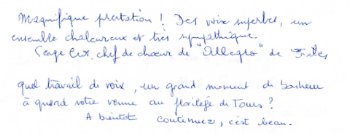 Magnifique prestation ! Des voix superbes, un
ensemble chaleureux et très sympathique.
chef de chœur de "Allegro" de
quel travail de voix, un grand moment de bonheur
à quand votre venue au florilège de Tours ?
A bientôt continuez, c'est beau.